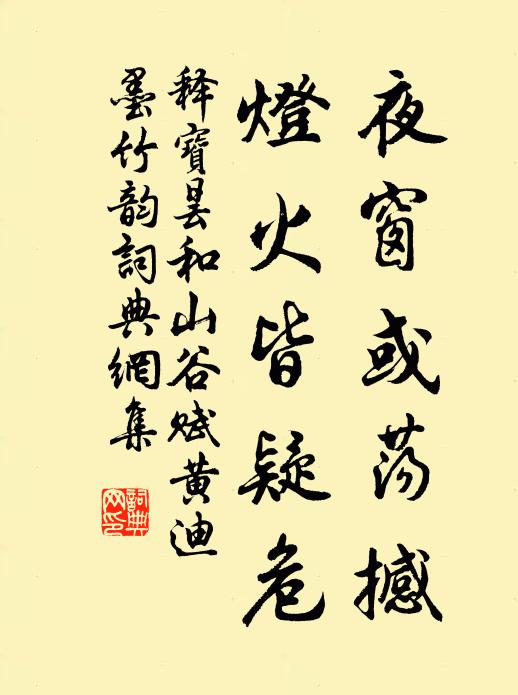 夜窗或荡撼
燈火皆疑危
释寶曇和山谷赋黄迪
墨竹韵詞典網集
詞典網印